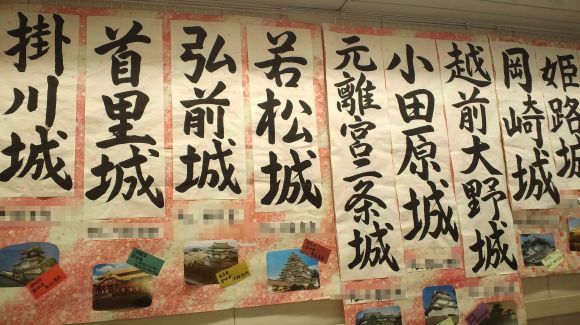 姫路城
岡崎城
越前大野城
小田原城
元離宮二条城
若松城
弘前城
首里城
掛川城